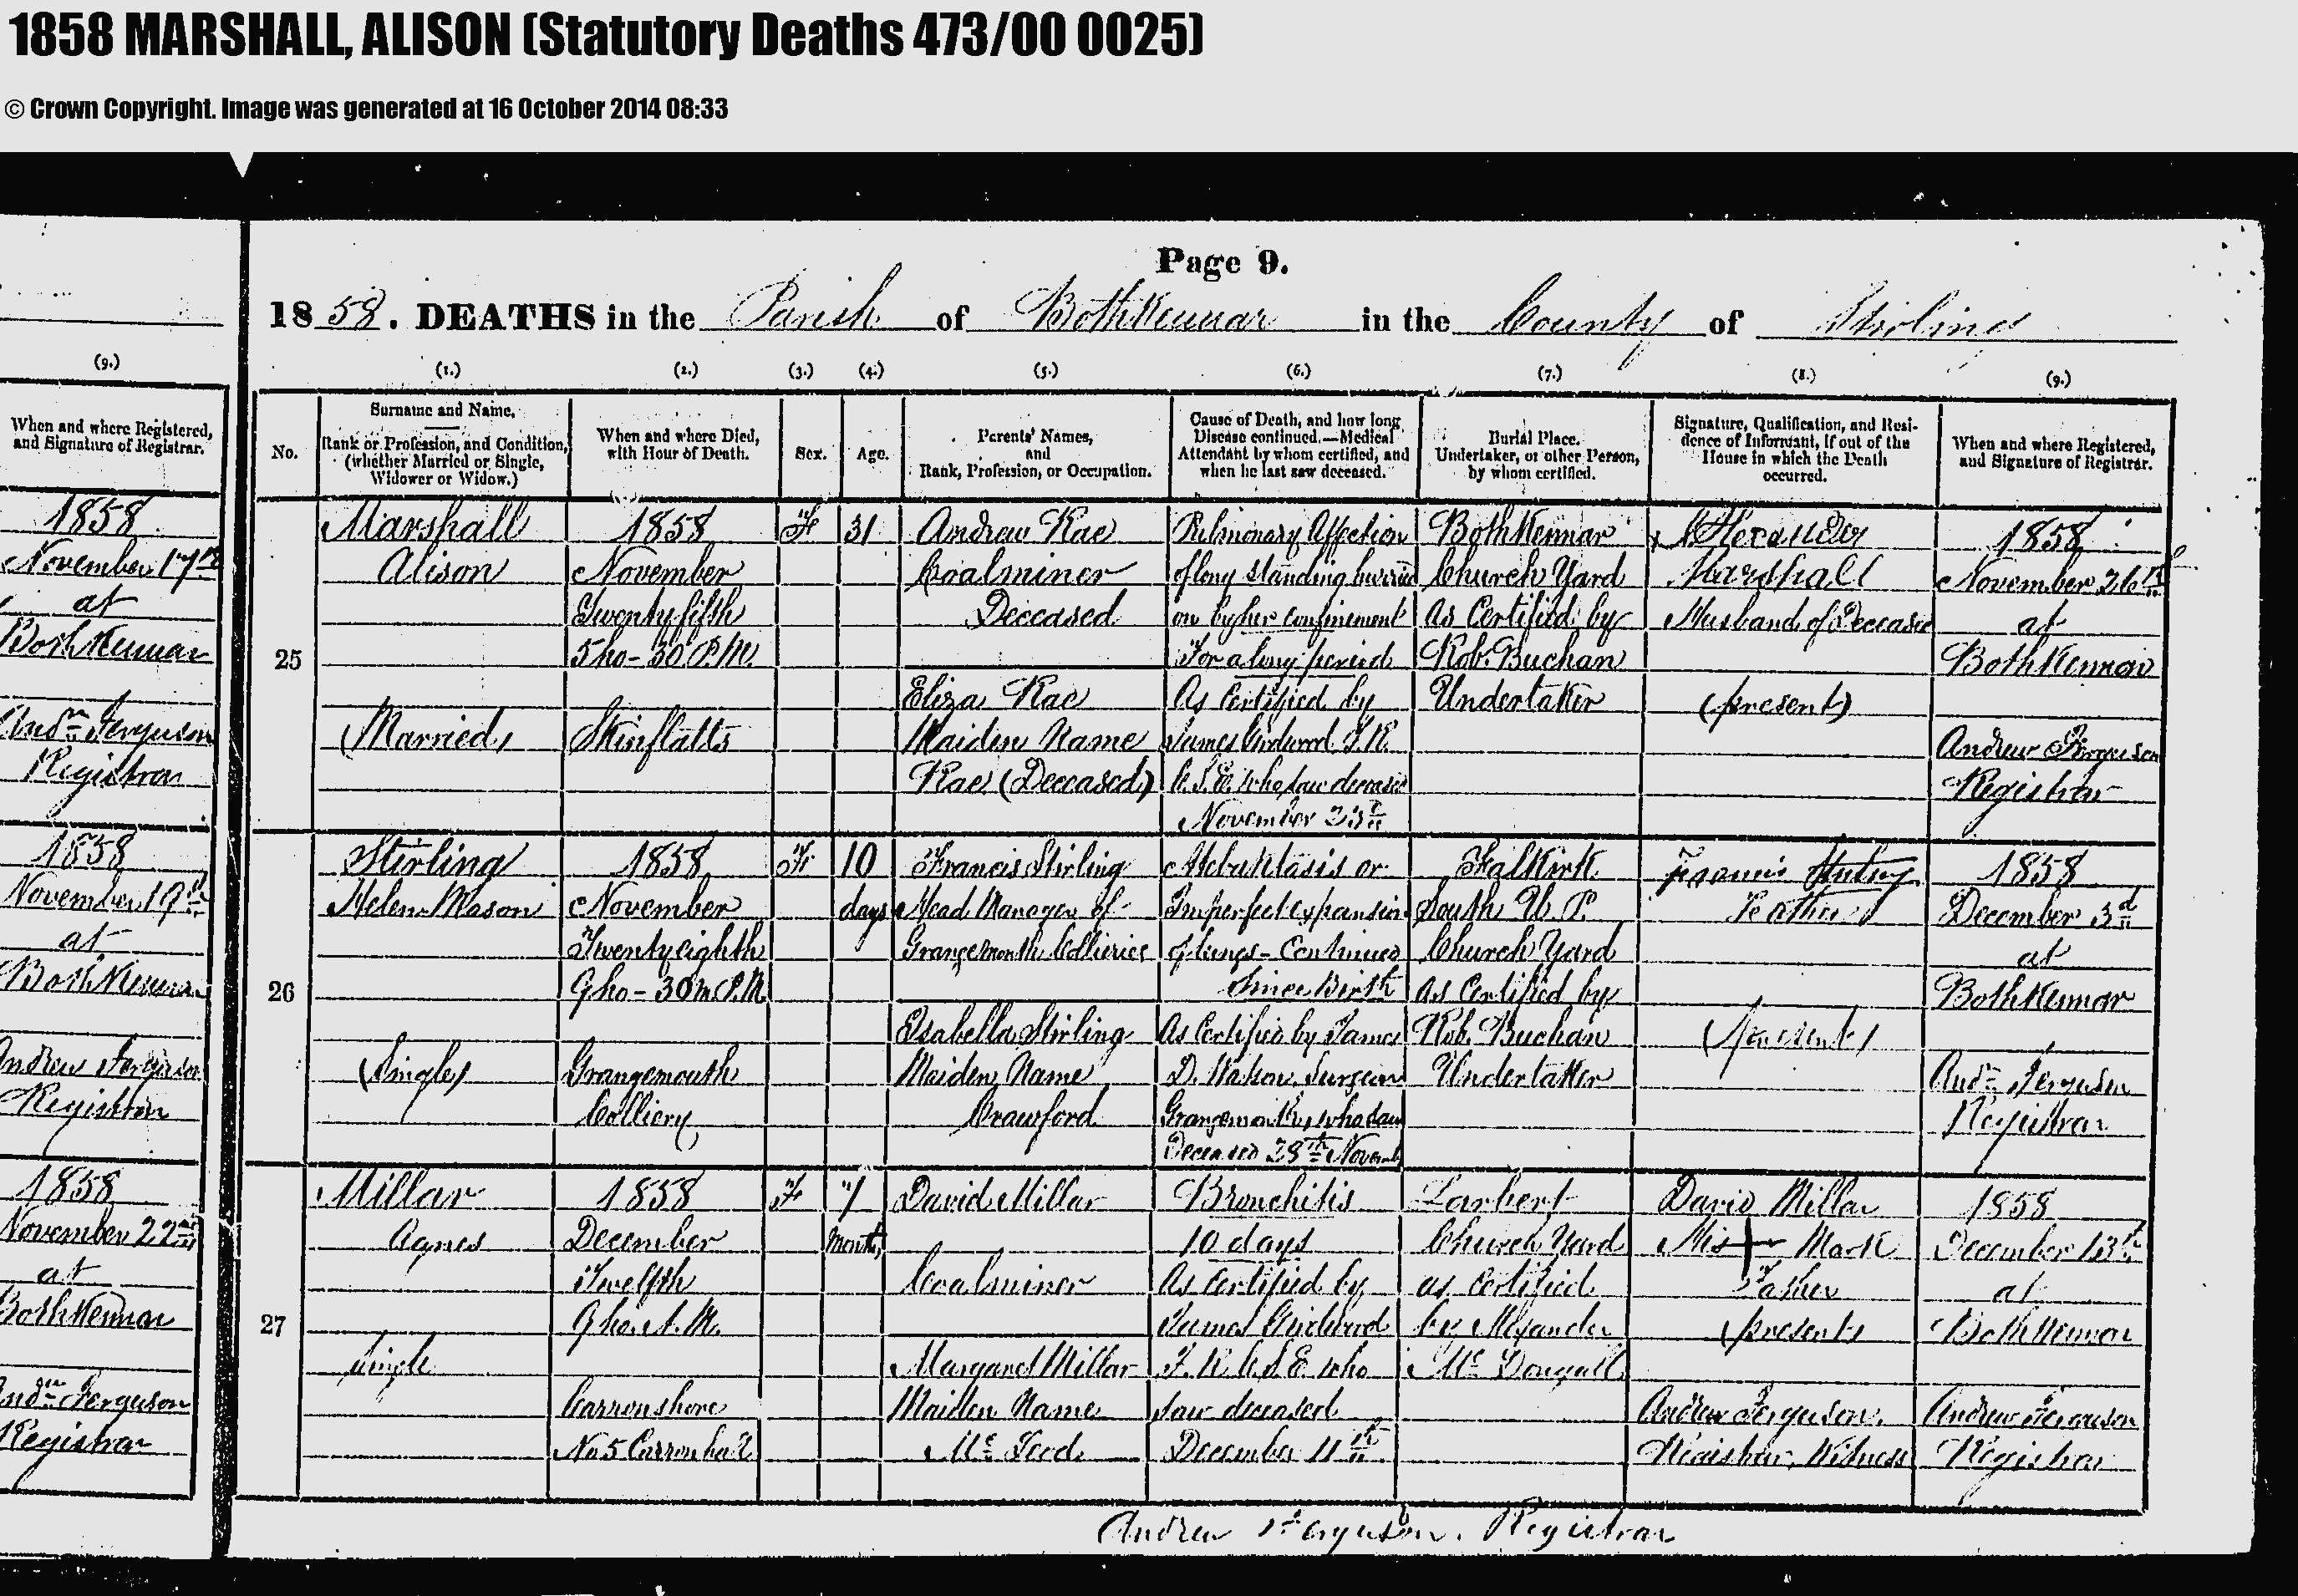 1858 MARSHALL, ALISON (Statutory Deaths 473/00 0025)
© Crown Copyright. Image was generated at 16 October 2014 08:33
Page 9.
1858. DEATHS in the Parish of Bothkennar in the County of Stirling
(9.)
When and where Registered,
and Signature of Registrar.
1858
November 17th
at
Bothkennar
Andw Ferguson
Registrar
1858
November 19th
at
Bothkennar
Andrew Ferguson
Registrar
1858
November 22nd
at
Bothkennar
Andw Ferguson
Registrar
(1.) (2.) (3.) (4.) (5.) (6.) (7.) (8.) (9.)
No.
Surname and Name,
Rank or Profession, and Condition,
(whether Married or Single,
Widower or Widow.)
When and where Died,
with Hour of Death.
Sex.
Age.
Parents' Names,
and
Rank, Profession, or Occupation.
Cause of Death, and how long
Disease continued.—Medical
Attendant by whom certified, and
when he last saw deceased.
Burial Place.
Undertaker, or other Person,
by whom certified.
Signature, Qualification, and Resi-
dence of Informant, if out of the
House in which the Death
occurred.
When and where Registered,
and Signature of Registrar.
25
Marshall
Alison
(Married)
1858
November
Twenty fifth
5ho-30 P.M.
Skinflatts
F
31
Andrew Rae
Coalminer
Deceased
Eliza Rae
Maiden Name
Rae (Deceased)
Pulmonary Affection
of long standing hurried
on by her confinement
For a long period
As Certified by
James Girdwood F.R.
C.S.E. who saw deceased
November 23d
Bothkennar
Church Yard
As Certified by
Rob. Buchan
Undertaker
Alexander
Marshall
Husband of Deceased
(present)
1858
November 26th
at
Bothkennar
Andrew Ferguson
Registrar
26
Stirling
Helen Mason
(Single)
1858
November
Twenty eighth
9ho-30m P.M.
Grangemouth
Colliery
F
10
days
Francis Stirling
Head Manager of
Grangemouth Collieries
Isabella Stirling
Maiden Name
Crawford
Atelektasis or
Imperfect expansion
of lungs - Continued
Since Birth
As Certified by James
D. Watson, Surgeon
Grangemouth, who saw
Deceased 28th Novemb
Falkirk
South U.P.
Church Yard
As Certified by
Rob. Buchan
Undertaker
Francis Stirling
Father
(present)
1858
December 3d
at
Bothkennar
Andw Ferguson
Registrar
27
Millar
Agnes
Single
1858
December
Twelfth
9ho. A.M.
Carronshore
No 5 Carronhall
F
7
Months
David Millar
Coalminer
Margaret Millar
Maiden Name
Bronchitis
10 days
As Certified by
James Girdwood
F.R.C.S.E. who
saw deceased
December 11th
Larbert
Church Yard
as Certified
by Alexander
Mc Dougall
David Millar
His + Mark
Father
(present)
Andrew Ferguson,
Registrar, Witness
1858
December 13th
at
Bothkennar
Andrew Ferguson
Registrar
Andrew Ferguson. Registrar